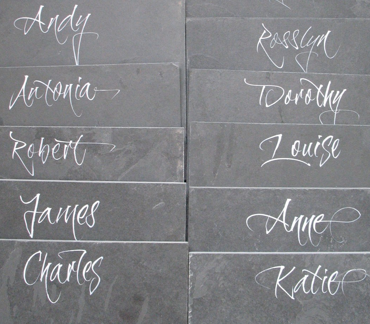 Andy
Antonia
Robert
James
Charles
Rosslyn
Dorothy
Louise
Anne
Katie